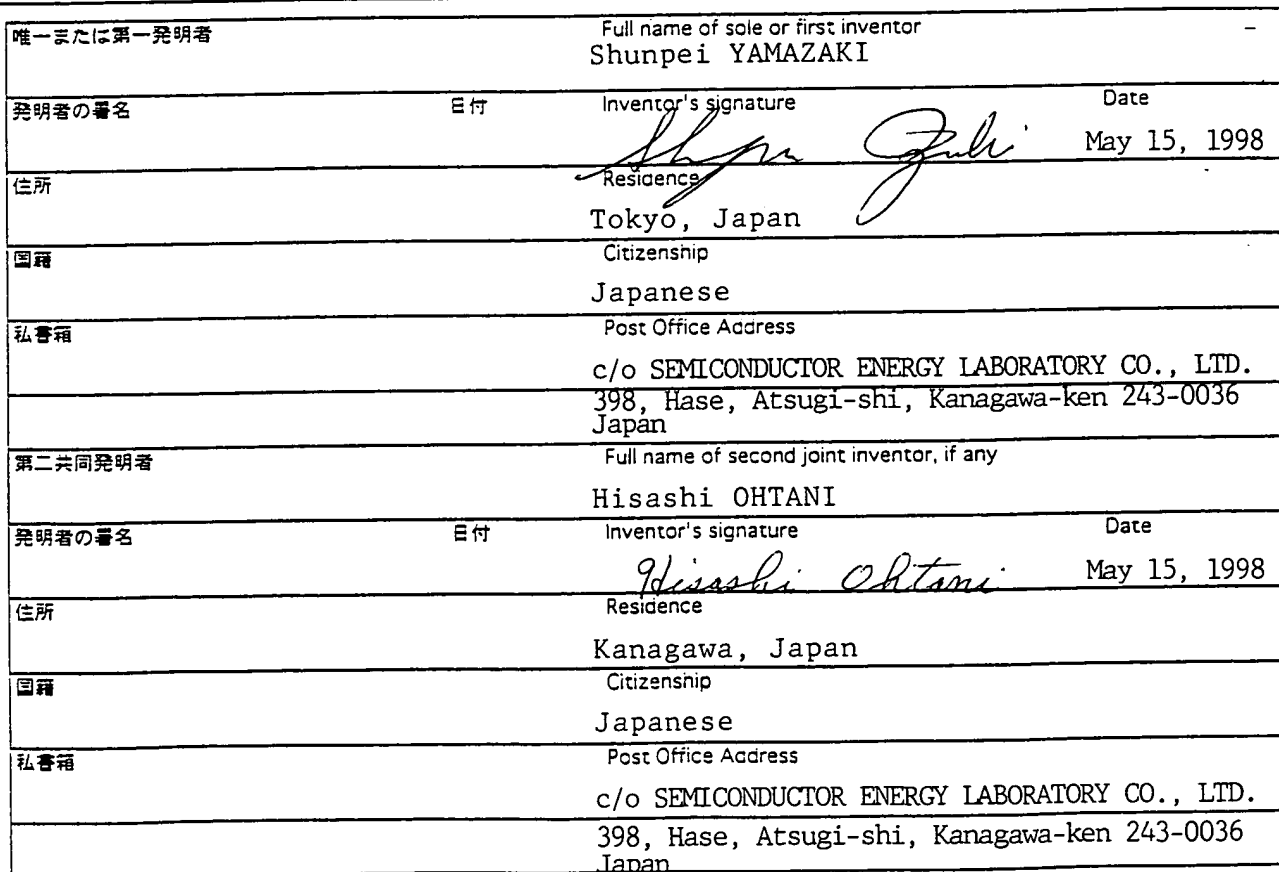 唯一または第一発明者 Full name of sole or first inventor
Shunpei YAMAZAKI
発明者の署名 日付 Inventor's signature Date
May 15, 1998
住所 Residence
Tokyo, Japan
国籍 Citizenship
Japanese
私書箱 Post Office Address
c/o SEMICONDUCTOR ENERGY LABORATORY CO., LTD.
398, Hase, Atsugi-shi, Kanagawa-ken 243-0036
Japan
第二共同発明者 Full name of second joint inventor, if any
Hisashi OHTANI
発明者の署名 日付 Inventor's signature Date
Hisashi Ohtani May 15, 1998
住所 Residence
Kanagawa, Japan
国籍 Citizenship
Japanese
私書箱 Post Office Address
c/o SEMICONDUCTOR ENERGY LABORATORY CO., LTD.
398, Hase, Atsugi-shi, Kanagawa-ken 243-0036
Japan